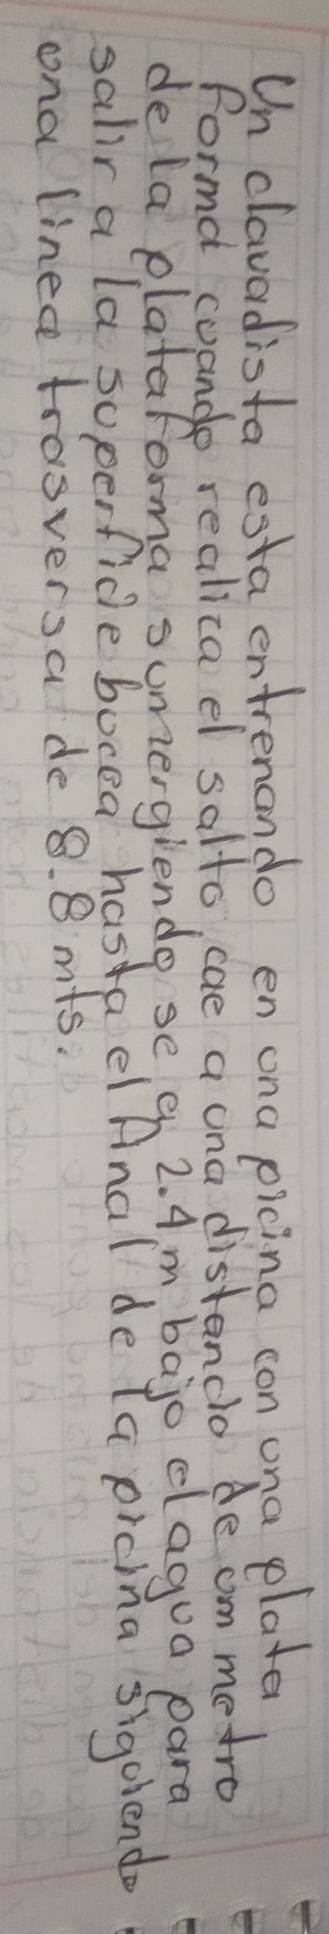 Un clavadista esta entrenando en una picina con una plata
forma cuando realiza el salto cae a una distancio de um metro
de la plataforma sumergiendo se a 2.4 m bajo el agua para
salir a la superficie bucea hasta el final de la picina siguiendo
una linea trasversa de 8.8 mts.